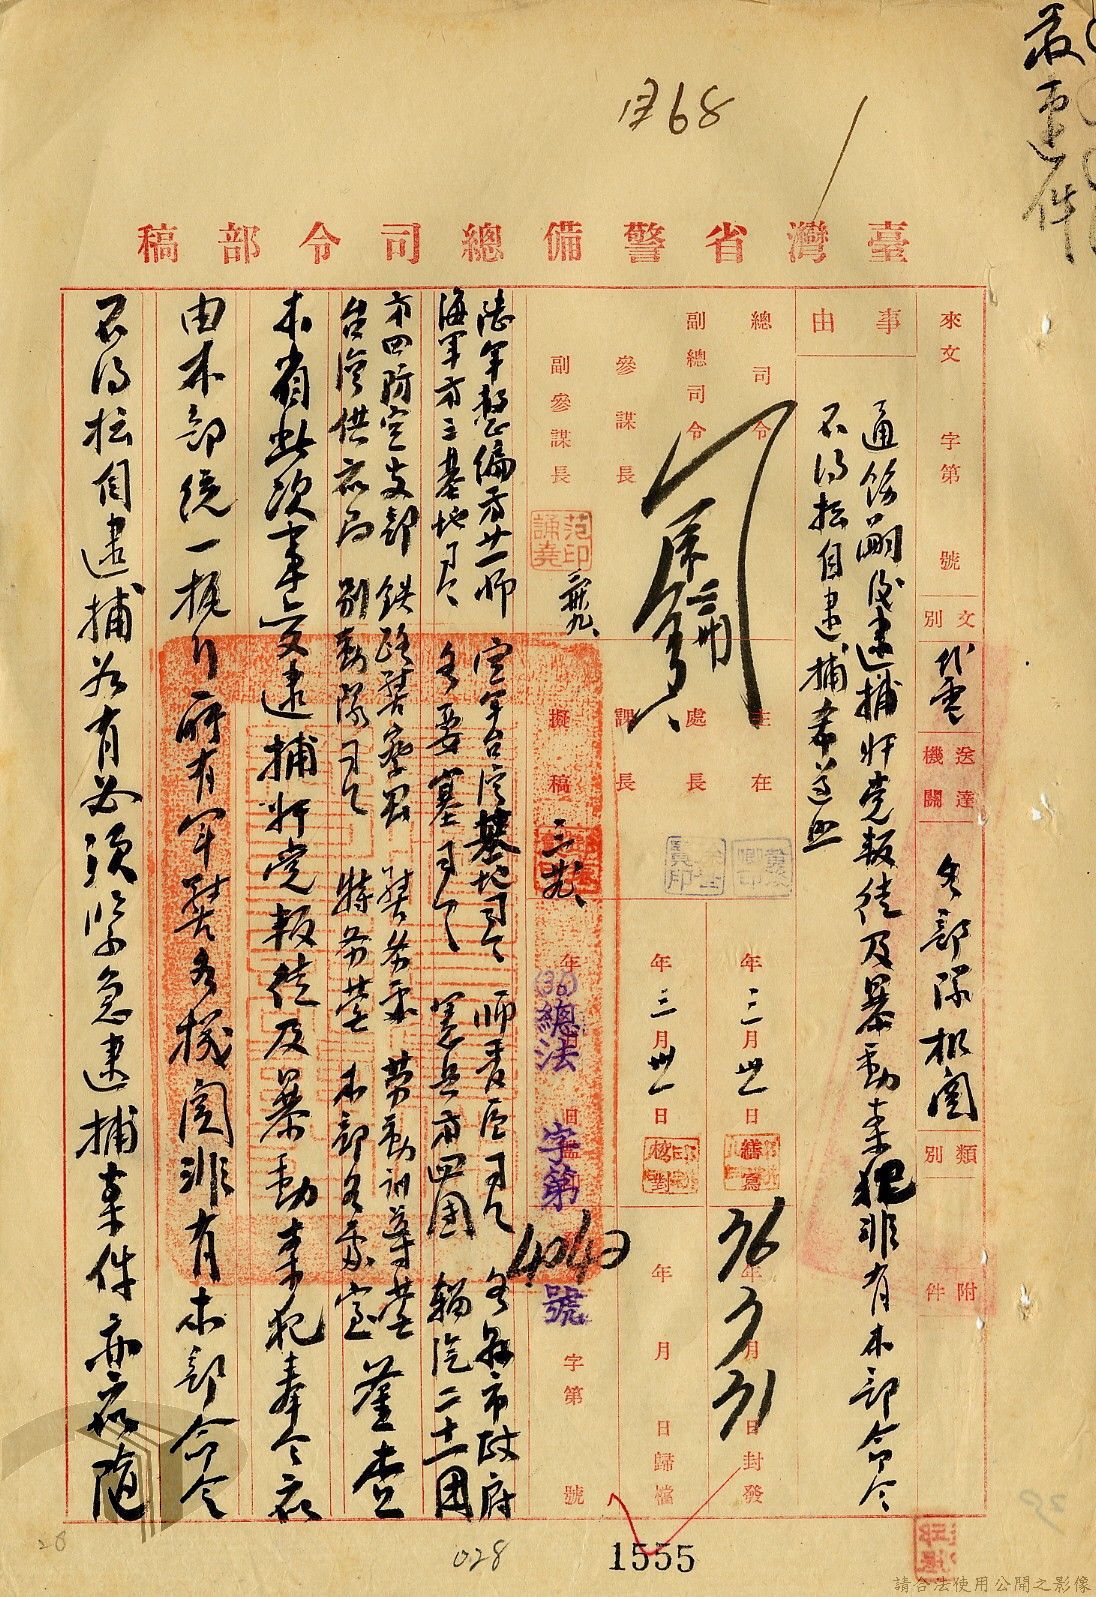 最速件
068
臺灣省警備總司令部稿
來文 字第 號
文別 代電
送達機關 各部隊機關
類別
附件
事由
通飭嗣後逮捕奸党叛徒及暴動案犯非有本部命令
不得擅自逮捕希遵照
總司令
副總司令
參謀長
副參謀長
主任
處長
課長
擬稿
范誦堯印
年三月卅一日繕寫
年三月卅一日校對
36年3月31日封發
年 月 日歸檔
(36)總法字第4040號
年 月 日
字第 號
陸軍整編第廿一師 空軍台灣基地司令 師管區司令 各縣市政府
海軍第三基地司令 各要塞司令 憲兵第四團 輜汽二十一團
第四防空支部 鉄路警察署 警務處 勞動訓導營
台灣供應局 別動隊司令 特務營 本部各處室 查
本省此次事變逮捕奸党叛徒及暴動案犯奉令應
由本部統一執行所有軍警各機関非有本部命令
不得擅自逮捕如有必須緊急逮捕案件亦應隨
28
028
1555
29
請合法使用公開之影像